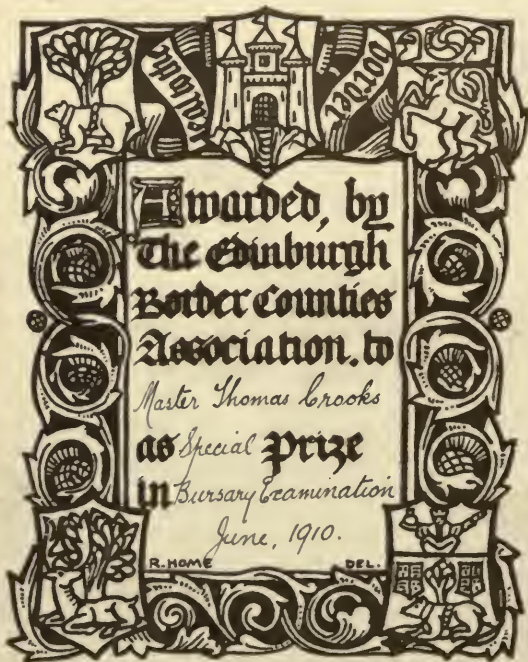 leal to the border
Awarded, by
The Edinburgh
Border Counties
Association, to
Master Thomas Crooks
as Special Prize
in Bursary Examination
June, 1910.
R. HOME DEL.